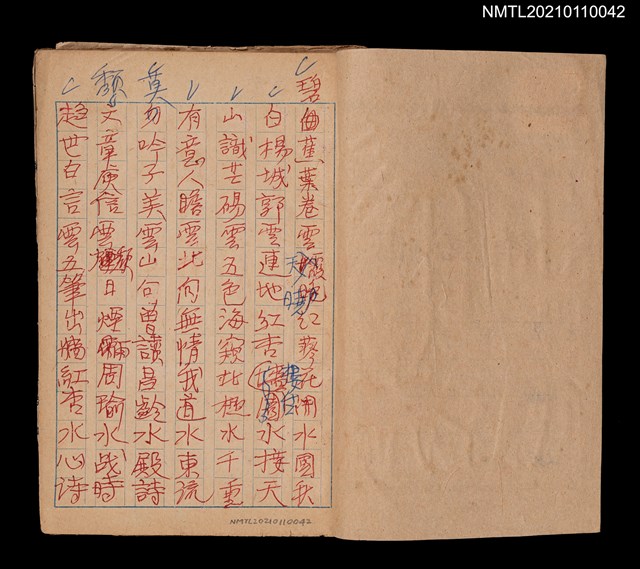 NMTL20210110042
碧曲蕉葉卷雲 紅蓼花開水國秋
白楊城郭雲連地紅杏 園水接天
山識芒碭雲五色海窺北極水千重
有意人瞻雲北向無情我道水東流
莫
勿吟子美雲山句曾讀昌齡水殿詩
文章庾信雲 日煙 周瑜水战時
趋世白言雲五筆出 紅杏水心诗
NMTL20210110042